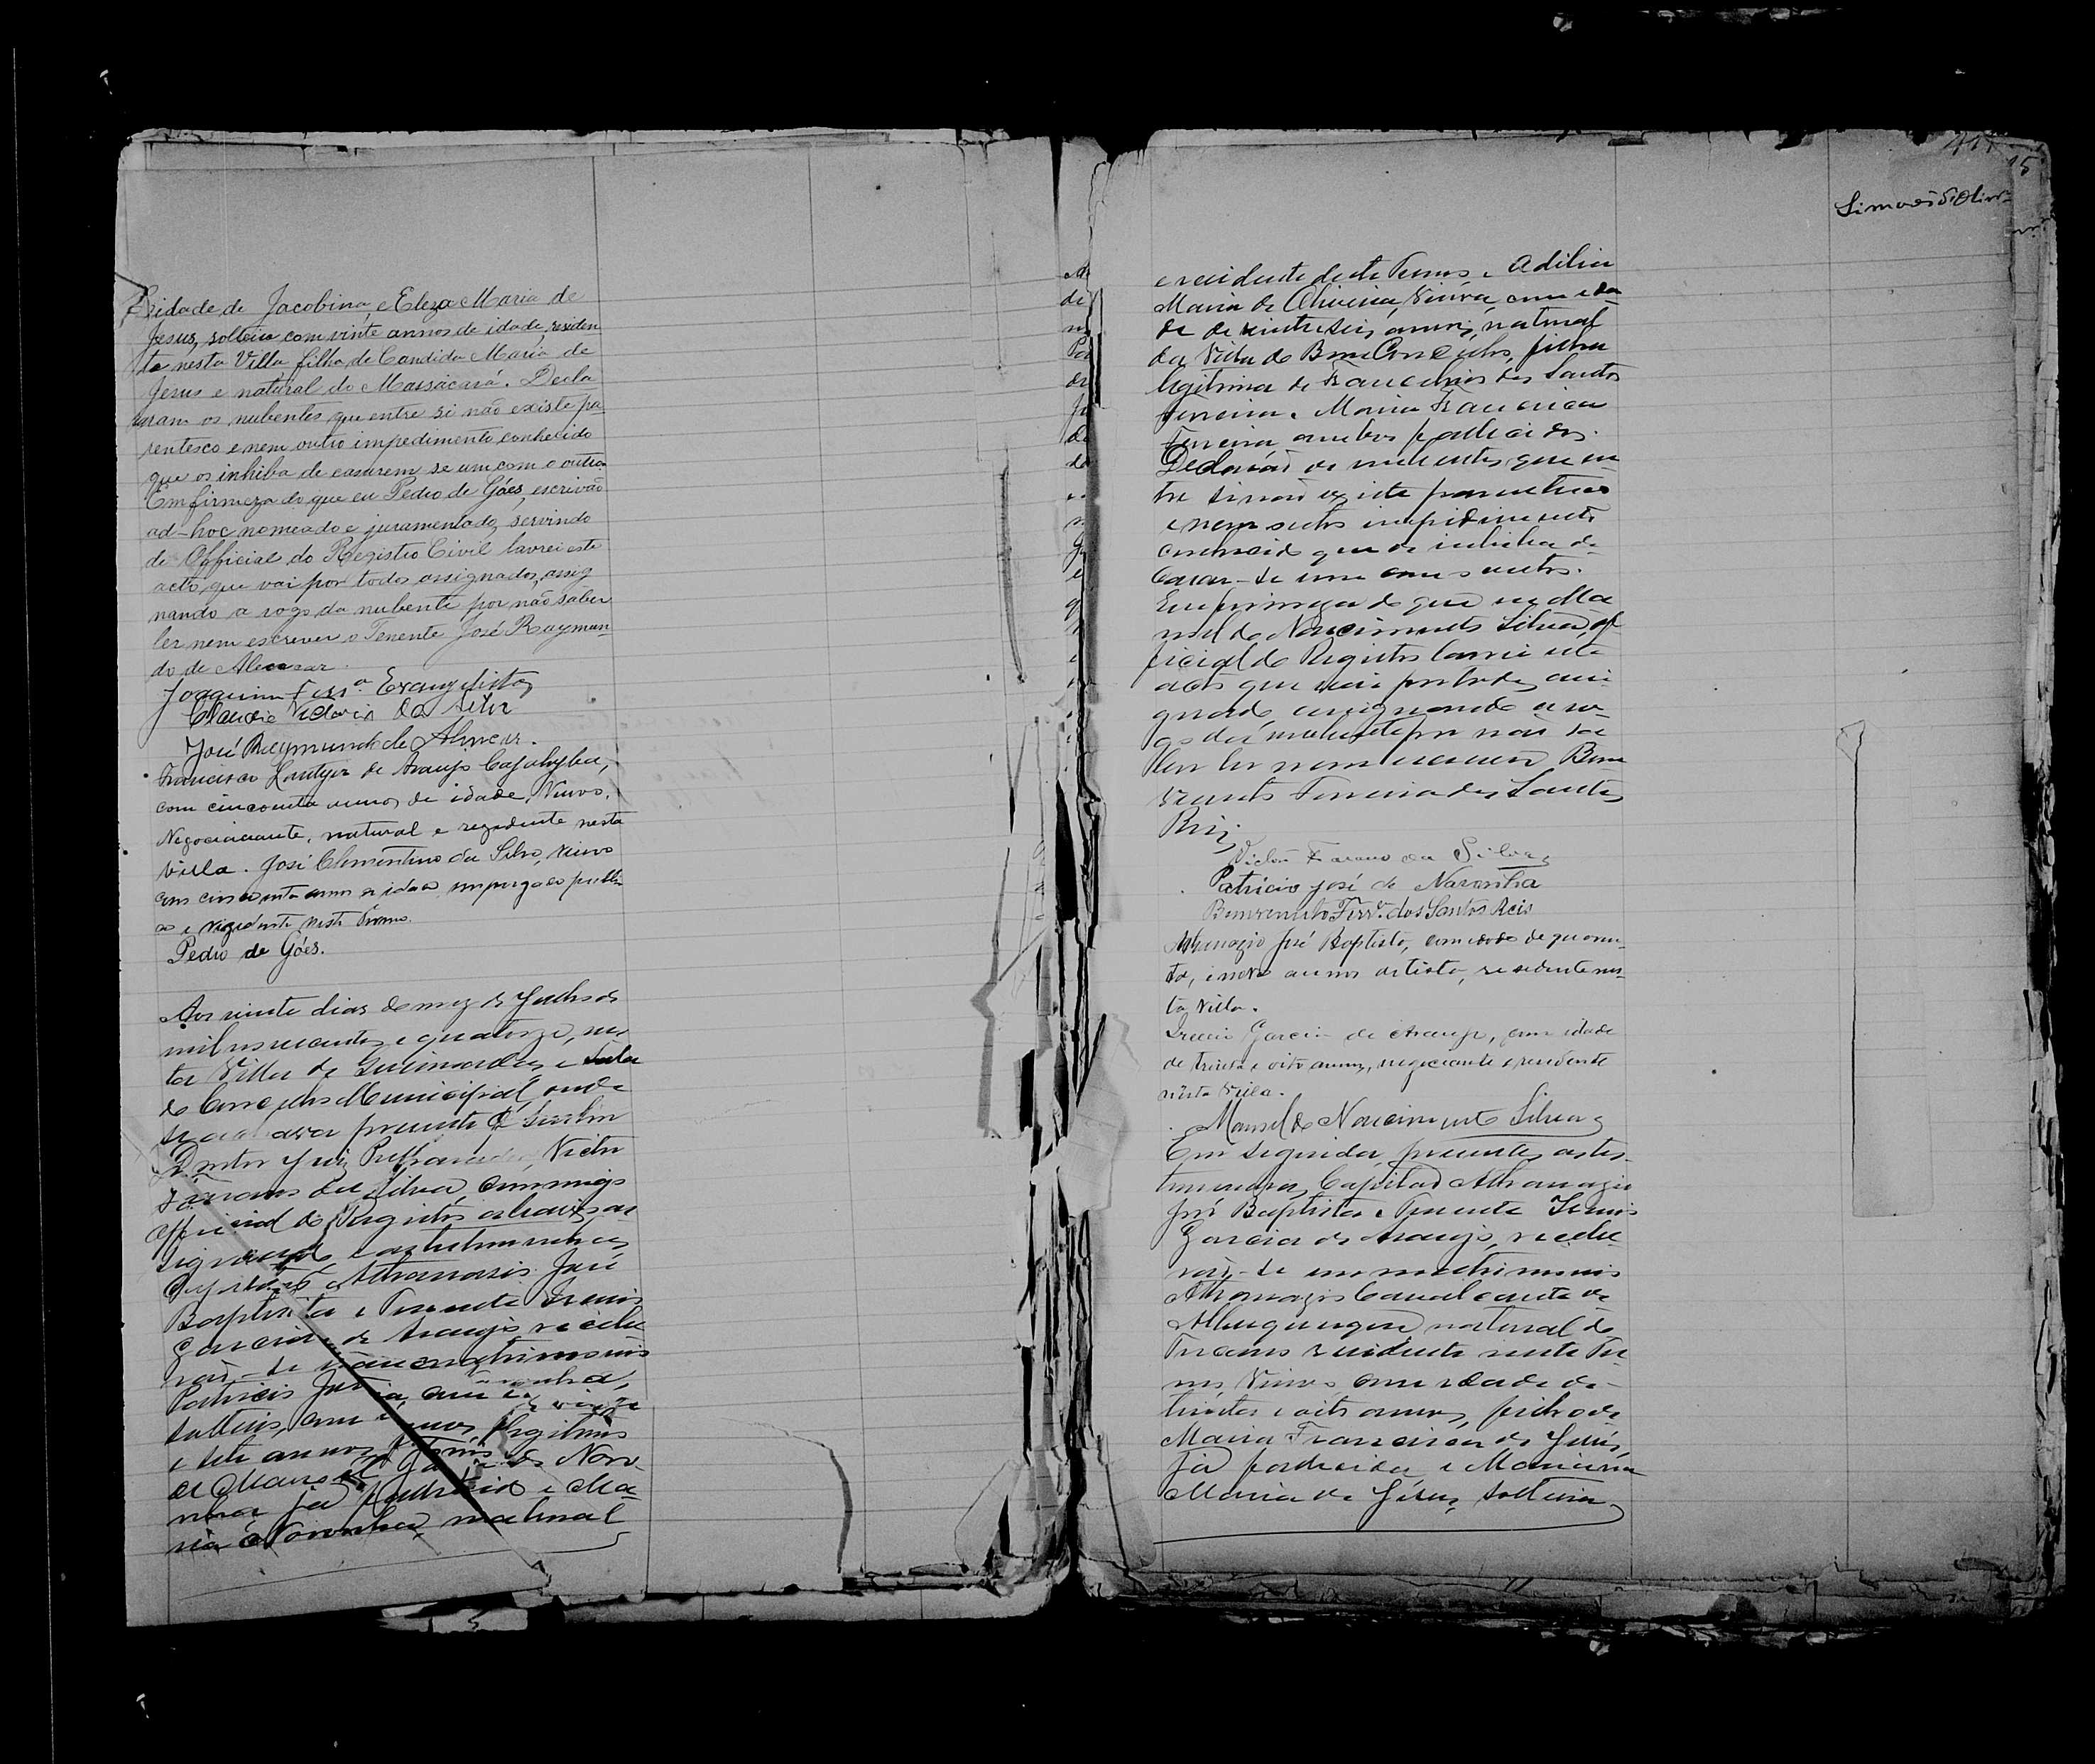 Cidade de Jacobina, e Eleza Maria de
Jesus, solteira com vinte annos de idade, residen
te nesta Villa filha de Candida Maria de
Jesus e natural do Massacará. Decla
raram os nubentes que entre si não existe pa_
rentesco e nem outro impedimento conhecido
que os inhiba de casarem se um com o outro
Em firmeza do que eu Pedro de Góes, escrivão
ad-hoc nomeado e juramentado, servindo
de Official do Registro Civil lavrei este
acto que vai por todos assignados, assig
nando a rogo da nubente por não saber
ler nem escrever o Tenente José Raymun_
do de Alencar.
Joaquim Ferrª. Evangelista
Claudio Victorio da Silva
José Raymundo de Alencar.
Francisco de Araujo Cajahyba,
com cincoenta annos de idade, Viuvo,
Negociante, natural e rezidente nesta
Villa. José Clementino da Silva, viuvo
com cincoenta annos de idade, empregado publi
co e rezidente neste Termo.
Pedro de Góes.
Aos vinte dias do mez de Julho de
mil novecentos e quatorze, nes
ta Villa de Queimadas, e Sala
do Conselho Municipal, onde
se achava presente o
Doutor Juiz Preparador, Victor
da Silva, commigo
Official do Registro abaixo as
signado e as testemunhas
Capitão Athanazio José
Baptista e Tenente Irenio
Garcia de Araujo recebe
rão-se em matrimonio
Patricio José
solteiro, com vinte
e sete annos, legitimo
de Manoel José de Noro
nha já fallecido e Ma
ria Noronha, natural
Simões d'Olivrª
e residente deste Termo e Adilia
Maria de Oliveira, Viuva, com ida
de de vinte e seis annos, natural
da Villa do Bom Conselho, filha
legitima de dos Santos
Ferreira e Maria Francisca
Ferreira ambos fallecidos.
Declarão os nubentes que en
tre si não existe parentesco
e nem outro impedimento
conhecido que os inhiba de
Casar-se um com o outro.
Em firmeza do que eu Ma
noel do Nascimento Silva, of
ficial do Registro lavrei este
acto que vai por todos assi
gnado assignando a ro
go da nubente por não sa
ber ler nem escrever Bem
venuto Ferreira dos Santos
Reis
Victor da Silva
Patricio José de Noronha
Bemvenuto Ferrª. dos Santos Reis
Athanazio José Baptista, com idade de quaren
ta, e nove annos artista, residente nes
ta Villa.
Irenio Garcia de Araujo, com idade
de trinta e oito annos, negociante e residente
nesta Villa.
Manoel do Nascimento Silva
Em seguida, presentes as tes
temunhas, Capitão Athanazio
José Baptista e Tenente Irenio
Garcia de Araujo, recebe
rão-se em matrimonio
Athanazio Cavalcante de
Albuquerque natural de
Tucano residente neste Ter
mo, Viuvo, com idade de
trinta e oito annos, filho de
Maria Francisca de Jesus,
já fallecida e
Maria de Jesus, solteira